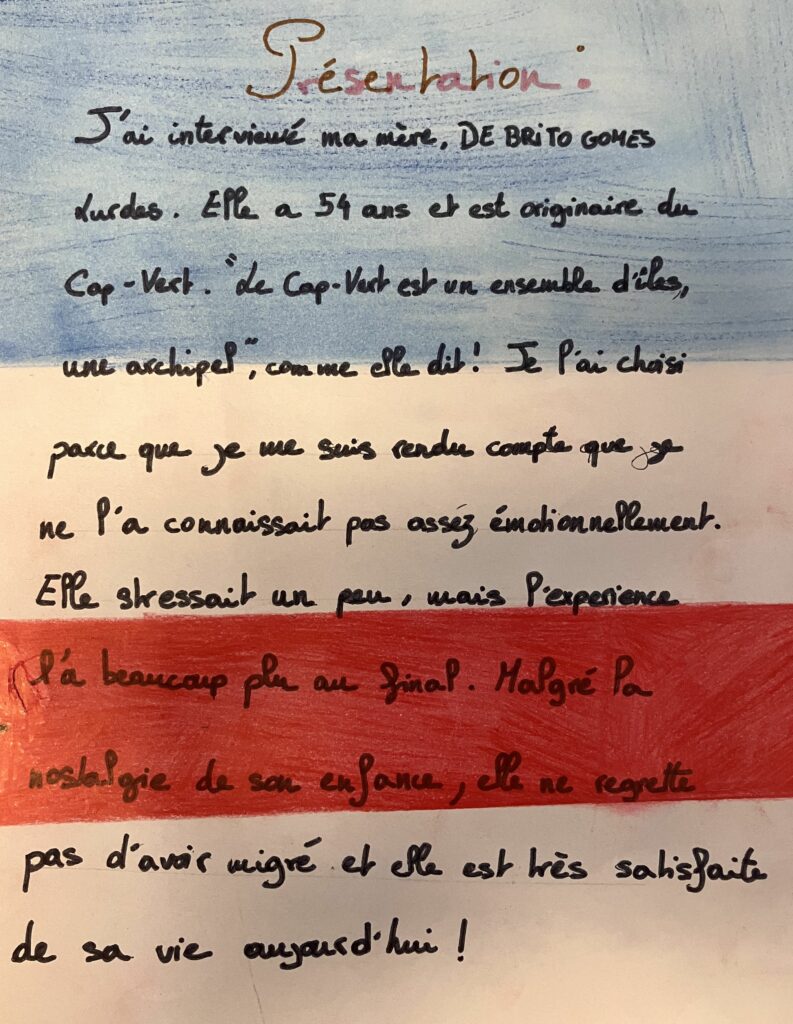 Présentation :
J'ai interviewé ma mère, DE BRITO GOMES
Lurdes. Elle a 54 ans et est originaire du
Cap-Vert. "Le Cap-Vert est un ensemble d'îles,
une archipel", comme elle dit ! Je l'ai choisi
parce que je me suis rendu compte que je
ne l'a connaissait pas assez émotionnellement.
Elle stressait un peu, mais l'experience
l'a beaucoup plu au final. Malgré la
nostalgie de son enfance, elle ne regrette
pas d'avoir migré et elle est très satisfaite
de sa vie aujourd'hui !